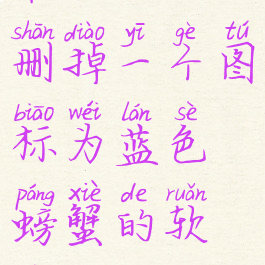 shān diào yī gè tú
删掉一个图
biāo wéi lán sè
标为蓝色
páng xiè de ruǎn
螃蟹的软